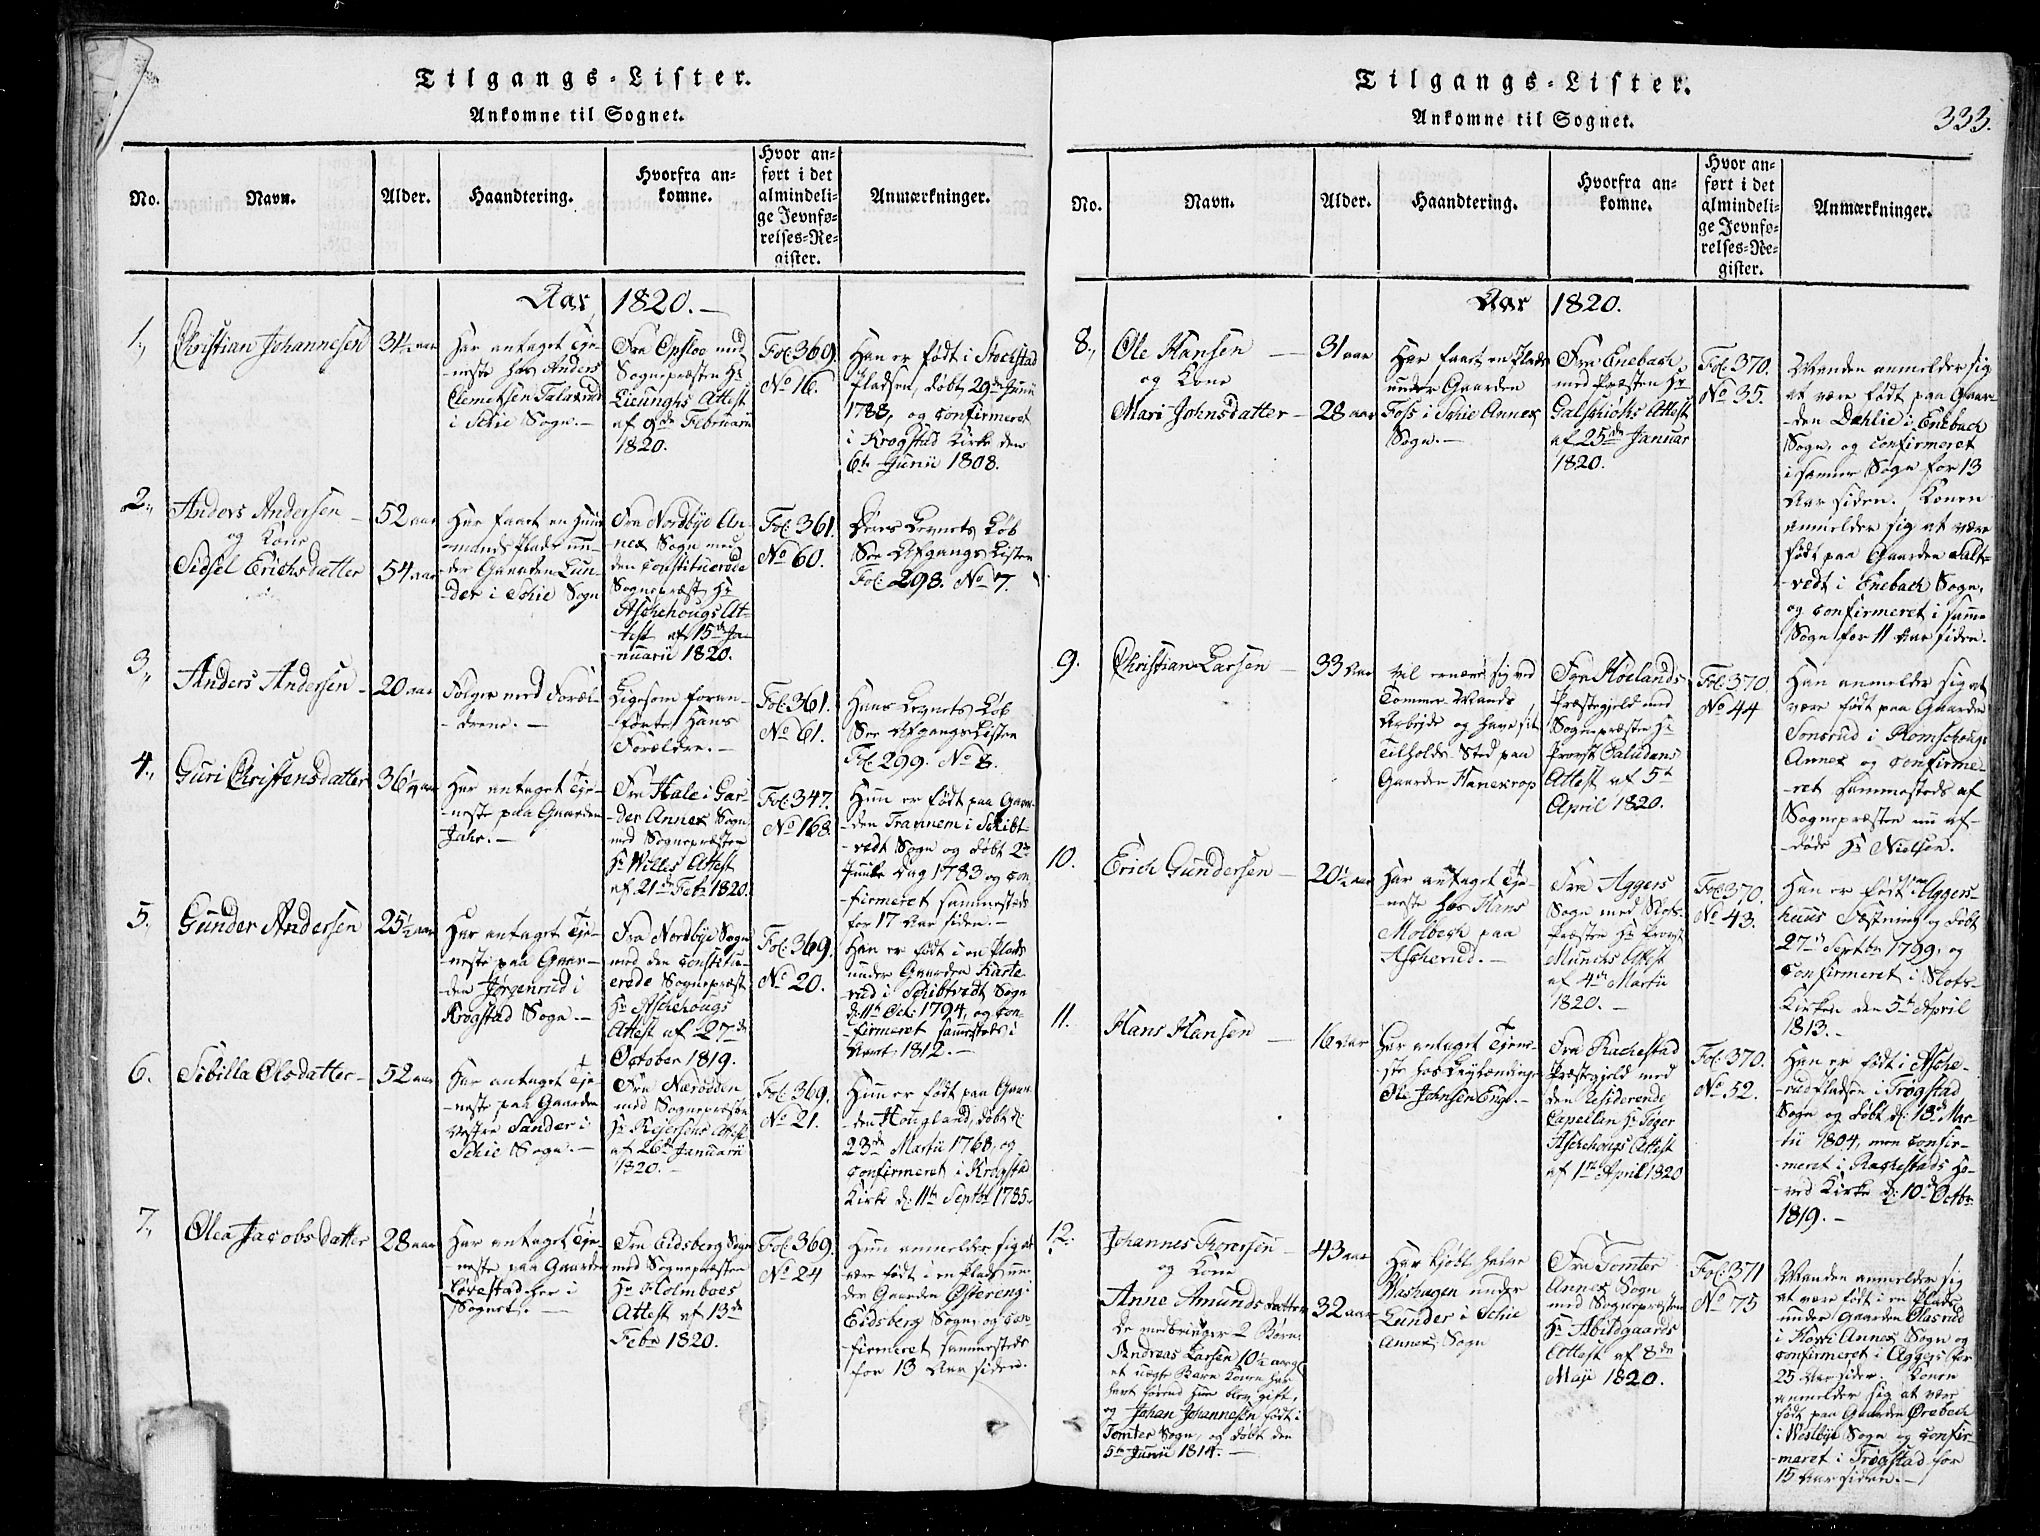 Tilgangs-Lister.
Ankomne til Sognet.
No.
Navn.
Alder.
Haandtering.
Hvorfra an-
komne.
Hvor an-
ført i det
almindeli-
ge Jevnfø-
relses-Re-
gister.
Anmærkninger.
Aar 1820.
1.,
Christian Johannesen
31½ aar
Har antaget Tje-
neste hos Anders
Clemetsen
i Schie Sogn.
Fra Opsloe med
Sognepræsten Hr
Attest
af 9de Februarii
1820.
Fol: 369.
No 16.
Han er født i Stochstad
Pladsen, døbt 29de Junii
1788, og confirmeret
i Krogstad Kirke den
6te Junii 1808.
2.,
Anders Andersen
og Kone
Sidsel Erichsdatter
52 aar
54 aar
Har faaet en Huus-
mands Plads un-
der Gaarden Lun-
der i Schie Sogn
Fra Nordbye An-
nex Sogn med
den constituerede
Sognepræst Hr
Aschehougs At-
test af 15de Ja-
nuarii 1820.
Fol: 361.
No 60.
Deres Levnets Løb
See Afgangs Listen
Fol: 298. No 7.
3.,
Anders Andersen
20 aar
Følger med Foræl-
drene.
Ligesom foran-
førte, Hans
Forældre.
Fol: 361.
No 61.
Hans Levnets Løb
See Afgangs Listen
Fol: 299. No 8.
4.,
Guri Christensdatter
36¼ aar
Har antaget Tje-
neste paa Gaarden
Jahr.
Fra Hale i Gar-
der Annex Sogn
med Sognepræsten
Hr Willes Attest
af 21de Feb: 1820.
Fol: 347.
No 168.
Hun er født paa Gaar-
den Trannem i Schibt-
vedt Sogn og døbt 2den
Juule Dag 1783 og con-
firmeret sammesteds
for 17 Aar siden.
5.,
Gunder Andersen
25½ aar
Har antaget Tje-
neste paa Gaar-
den Jørgenrud i
Krogstad Sogn.
Fra Nordbye Sogn
med den constitu-
erede Sognepræst
Hr Aschehougs
Attest af 27de
October 1819.
Fol: 369.
No 20.
Han er født i en Plads
under Gaarden Karte-
rud i Schibtvedt Sogn
d: 11te Oct: 1794, og con-
firmeret sammesteds i
Aaret 1812.
6.
Sibilla Olsdatter
52 aar
Har antaget Tje-
neste paa Gaarden
Vestre Sander i
Schie Sogn.
Fra Nærodden
med Sognepræsten
Hr Attest
af 26de Januarii
1820.
Fol: 369.
No 21.
Hun er født paa Gaar-
den Hougland, døbt d:
23de Martii 1768, og
confirmeret i Krogstad
Kirke d: 11te Septbr 1785.
7.,
Olea Jacobsdatter
28 aar
Har antaget Tje-
neste paa Gaarden
Løvestad her i
Sognet.
Fra Eidsberg Sogn
med Sognepræsten
Hr Holmboes
Attest af 13de
Febr 1820.
Fol: 369.
No 24
Hun anmelder sig at
være født i en Plads un-
der Gaarden Østereng i
Eidsberg Sogn, og con-
firmeret sammesteds
for 13 Aar siden.
Tilgangs-Lister.
Ankomne til Sognet.
333.
No.
Navn.
Alder.
Haandtering.
Hvorfra an-
komne.
Hvor an-
ført i det
almindeli-
ge Jevnfø-
relses-Re-
gister.
Anmærkninger.
Aar 1820.
8.,
Ole Hansen
og Kone
Mari Johnsdatter
31 aar
28 aar
Har faaet en Plads
under Gaarden
Foss i Schie Annex
Sogn.
Fra Enebach
med Præsten Hr
Galschiøts Attest
af 25de Januar
1820.
Fol: 370.
No 35.
Manden anmelder sig
at være født paa Gaar-
den Dæhlie i Enebach
Sogn, og confirmeret
i samme Sogn for 13
Aar siden. Konen
anmelder sig at være
født paa Gaarden
i Enebach Sogn,
og confirmeret i samme
Sogn for 11 Aar siden.
9.
Christian Larsen
33 aar
Vil ernære sig ved
Tømmer Mands
Arbejde og have sit
Tilholds Sted paa
Gaarden Hanekrop
Fra Høelands
Præstegjeld med
Sognepræsten Hr
Provst Paludans
Attest af 5te
April 1820.
Fol: 370
No 44
Han anmelder sig at
være født paa Gaarden
Sonsrud i Romschougs
Annex og confirme-
ret sammesteds af
Sognepræsten nu af-
døde Hr Nielsen.
10.
Erich Gundersen
20½ aar
Har antaget Tje-
neste hos Hans
Molbech paa
Ascherud.
Fra Aggers
Sogn med Slots-
Præsten Hr Provst
Munchs Attest
af 4de Martii
1820.
Fol: 370.
No 43.
Han er født paa Aggers-
huus Fæstning og døbt
27de Septbr 1799, og
confirmeret i Slots-
Kirken den 5te April
1813.
11.
Hans Hansen
16 aar
Har antaget Tjene-
ste hos
Ole Johnsen Eng.
Fra Rachestad
Præstegjeld med
den residerende
Capellan Hr
Aschehougs Attest
af 1ste April 1820
Fol: 370.
No 52.
Han er født i Asche-
rudpladsen i Trøgstad
Sogn og døbt d: 18de Mar-
tii 1804, men confir-
meret i Rachestads Ho-
ved Kirke d: 10de Octbr
1819.
12.
Johannes Torersen
og Kone
Anne Amundsdatter
De medbringer 2 Børn
Andreas Larsen 10½ aar
et uægte Barn Konen har
havt førend hun blev gift,
og Johan Johannesen født i
Tomter Sogn, og døbt den
5te Junii 1814.
43 aar
32 aar
Har kjøbt halve
under
Lunder i Schie
Annex Sogn
Fra Tomter
Annex Sogn
med Sognepræsten
Hr Abildgaards
Attest af 8de
Maji 1820.
Fol: 371
No 75
Manden anmelder sig
at være født i en Plads
under Gaarden
i Annex Sogn og
confirmeret i Aggers for
25 Aar siden. Konen
anmelder sig at være
født paa Gaarden Ørebech
i Vestbye Sogn og confir-
meret i Trøgstad for
15 Aar siden.